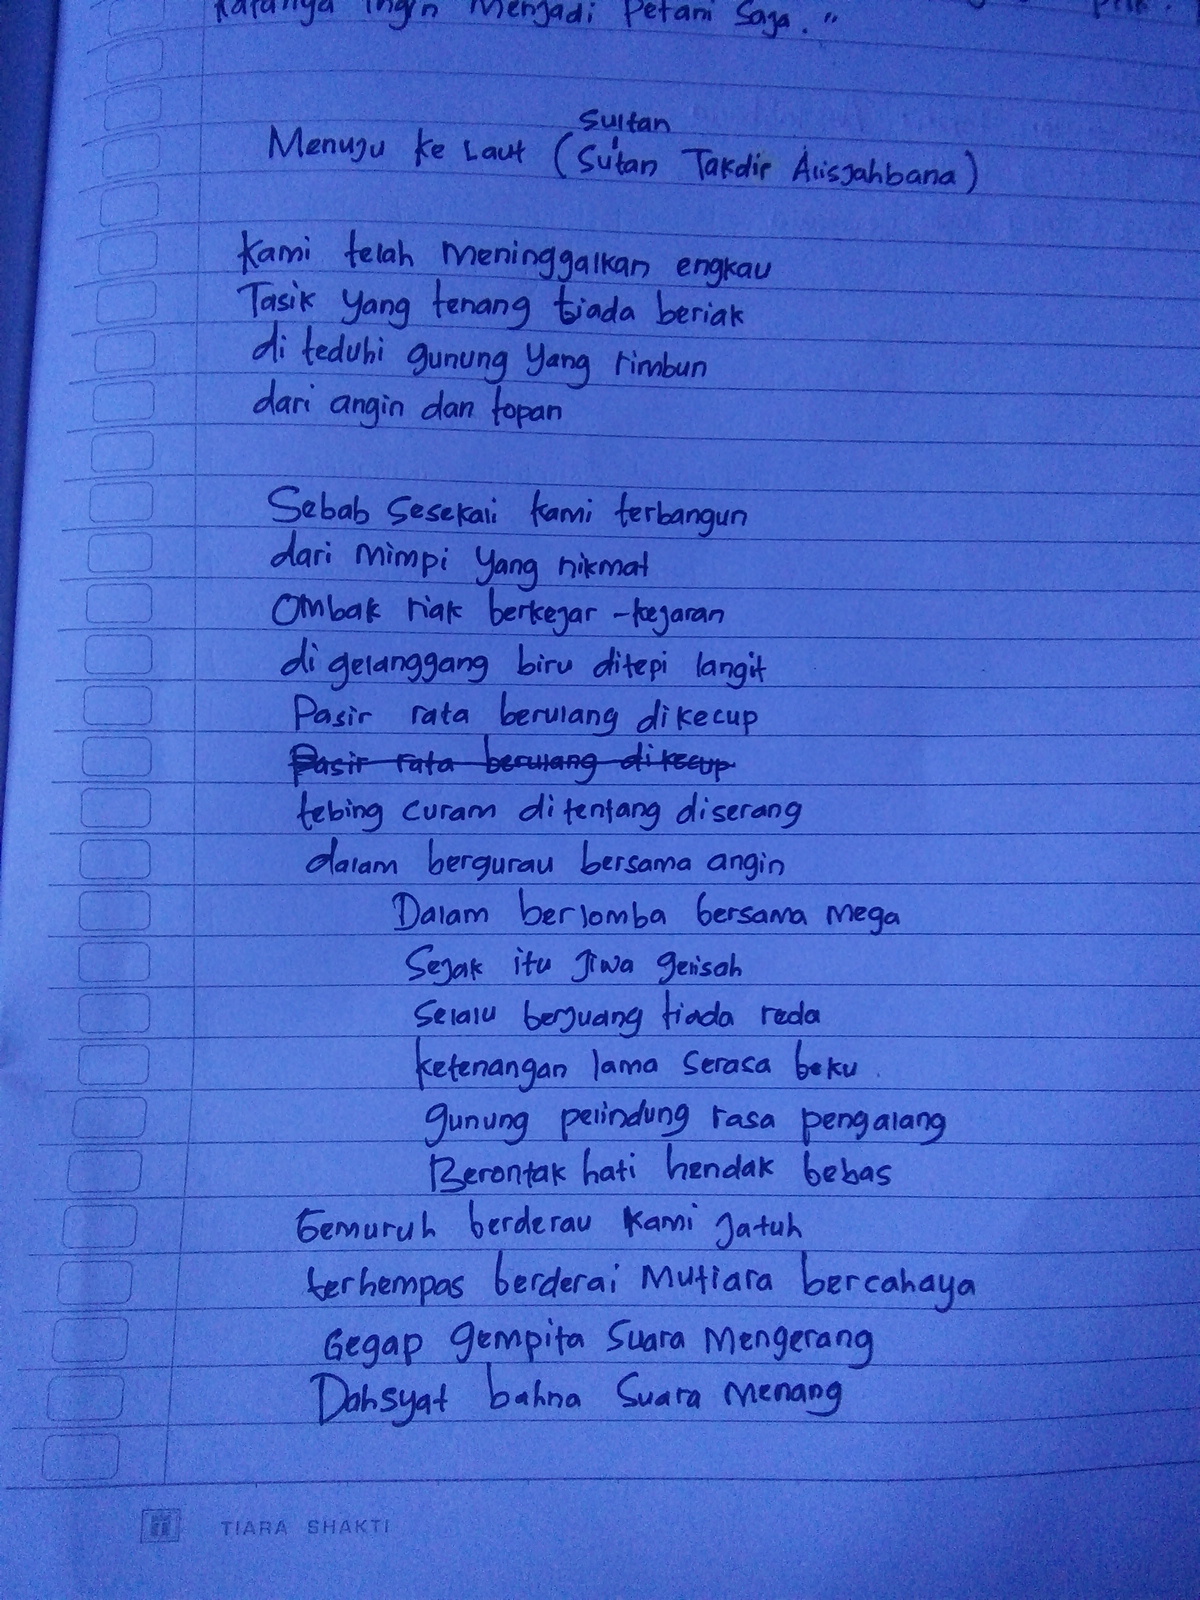 Katanya ingin menjadi Petani Saja."
Sultan
Menuju ke Laut (Sutan Takdir Alisjahbana)
Kami telah meninggalkan engkau
Tasik yang tenang tiada beriak
di teduhi gunung yang rimbun
dari angin dan topan
Sebab Sesekali kami terbangun
dari mimpi yang nikmat
Ombak riak berkejar-kejaran
di gelanggang biru ditepi langit
Pasir rata berulang dikecup
Pasir rata berulang dikecup
tebing curam ditentang diserang
dalam bergurau bersama angin
Dalam berlomba bersama mega
Sejak itu jiwa gelisah
Selalu berjuang tiada reda
ketenangan lama serasa beku
gunung pelindung rasa pengalang
Berontak hati hendak bebas
Gemuruh berderau kami jatuh
terhempas berderai Mutiara bercahaya
Gegap gempita Suara Mengerang
Dahsyat bahna Suara Menang
TIARA SHAKTI